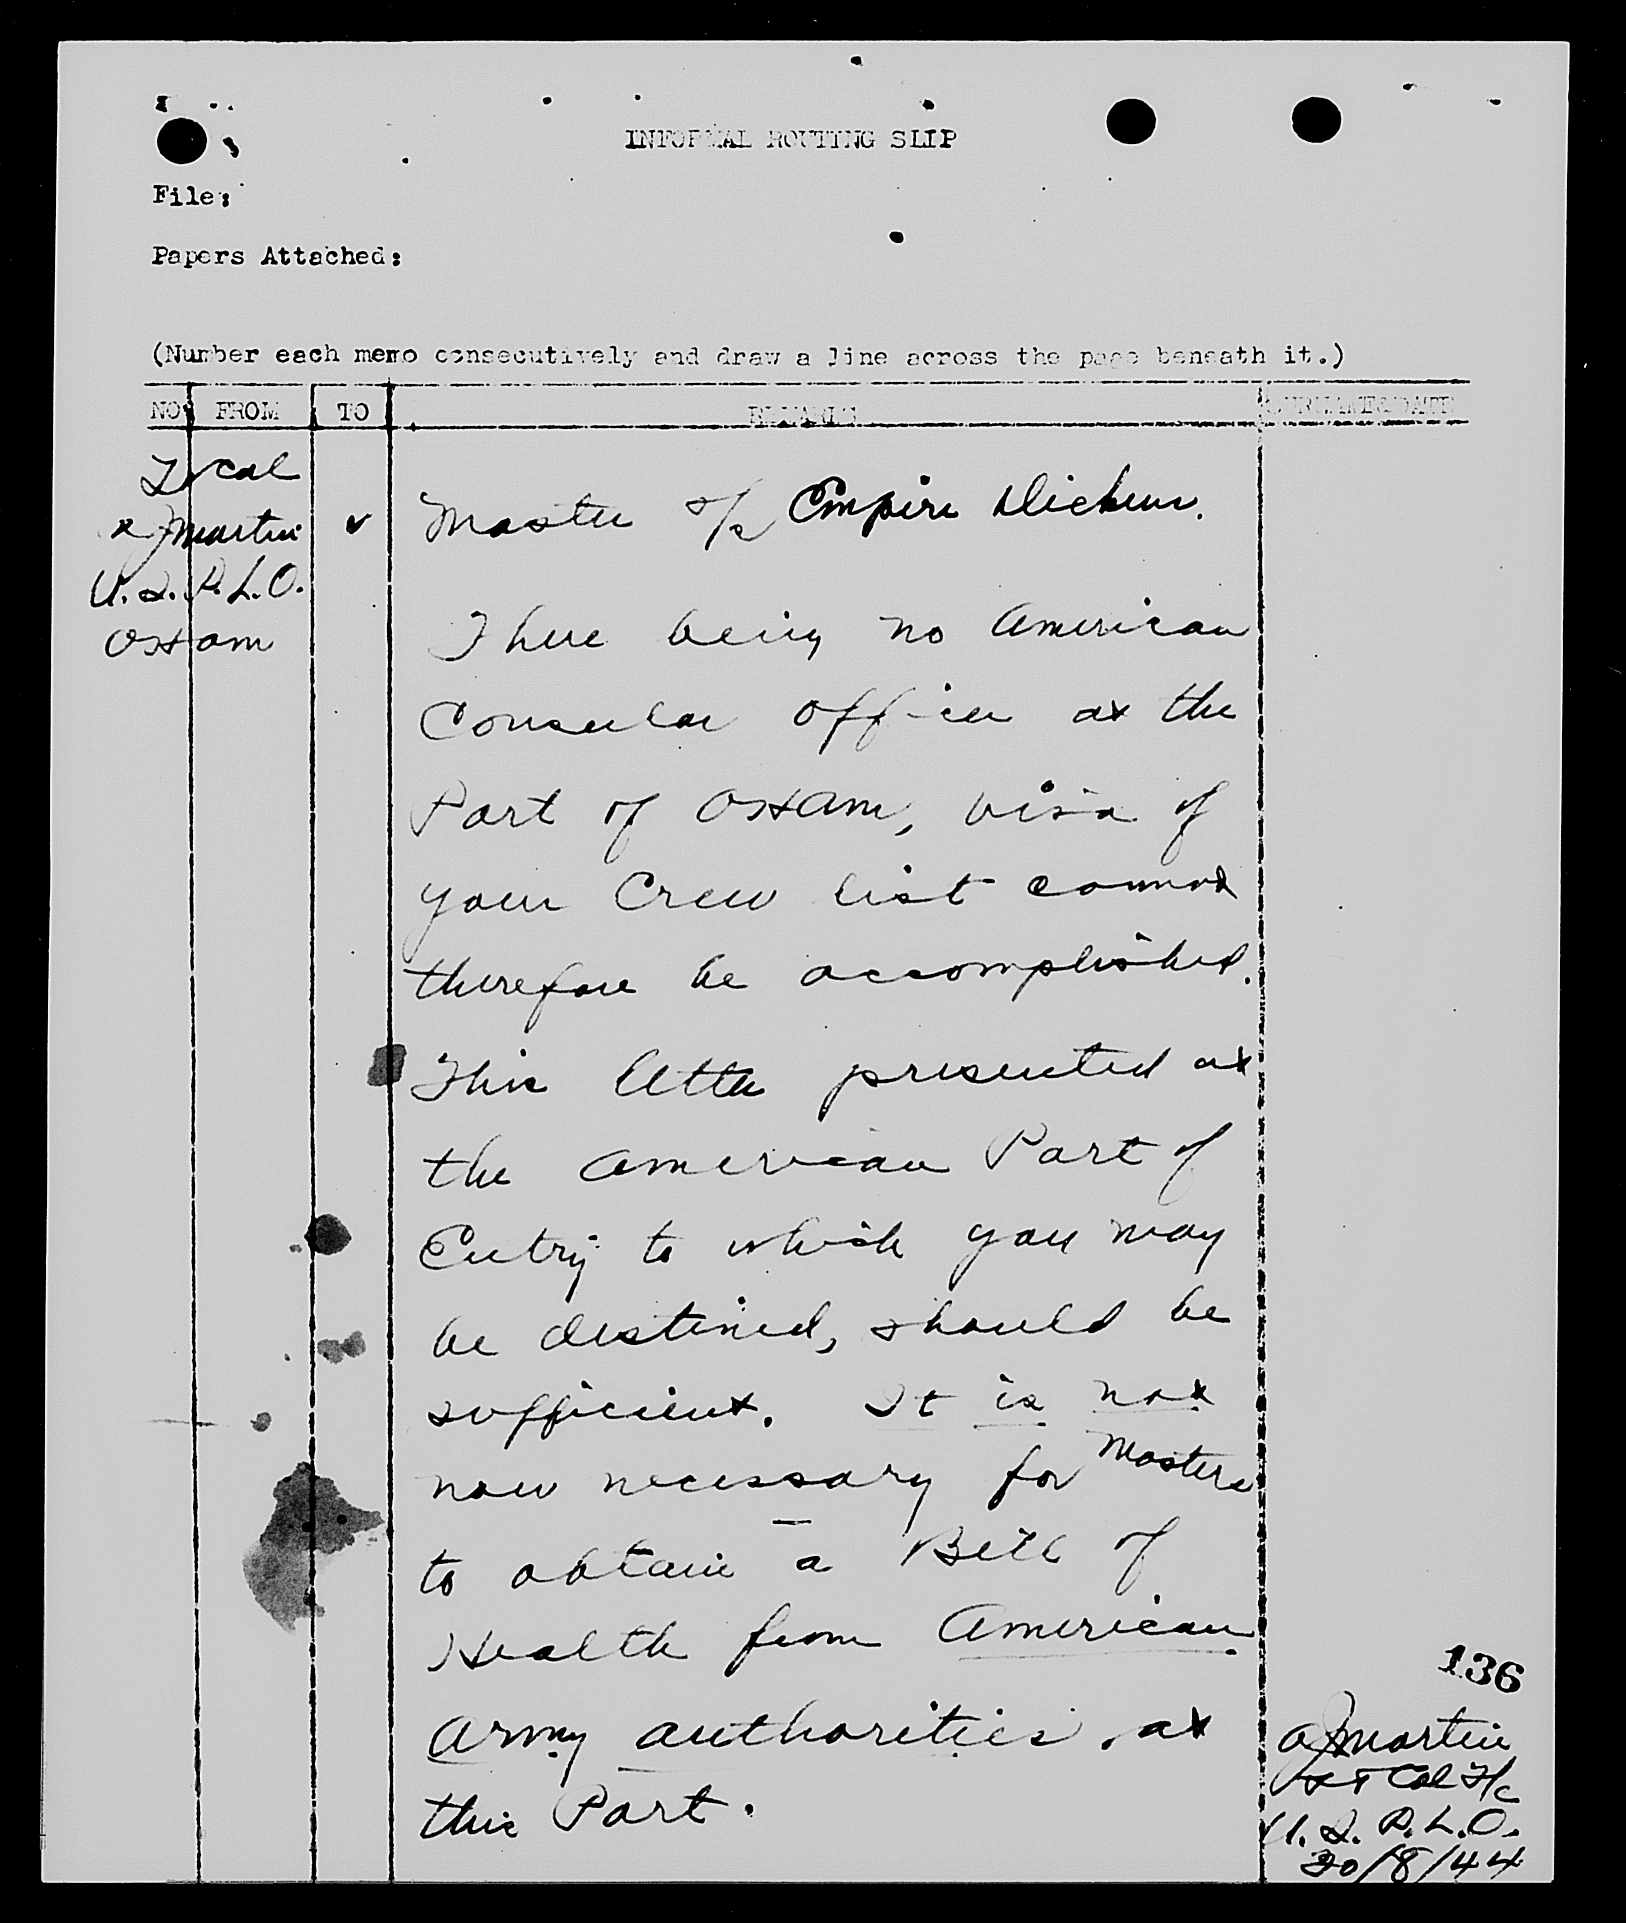 INFORMAL ROUTING SLIP
File:
Papers Attached:
(Number each memo consecutively and draw a line across the page beneath it.)
NO FROM TO REMARKS
Master s/s Empire Dickens.
There being no American
Consular officer at the
Port of Ostam, visa of
your Crew list cannot
therefore be accomplished.
This letter presented at
the American Port of
Entry to which you may
be destined, should be
sufficient. It is not
now necessary for Masters
to obtain a Bill of
Health from American
Army authorities at
this Port.
136
AJ Martin
Lt Col
U.S.P.L.O.
20/8/44
LtCol
AJ Martin
U.S.P.L.O.
Ostam